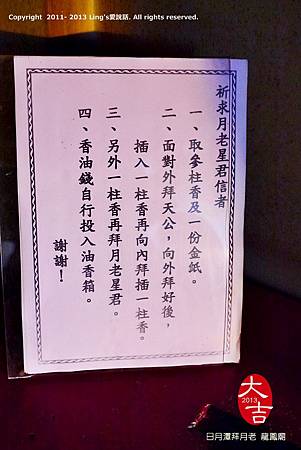 Copyright 2011- 2013 Ling's愛說話. All rights reserved.
祈求月老星君信者
一、取參柱香及一份金紙。
二、面對外拜天公，向外拜好後，
插入一柱香再向內拜插一柱香。
三、另外一柱香再拜月老星君。
四、香油錢自行投入油香箱。
謝謝！
大
2013
吉
日月潭拜月老 龍鳳廟